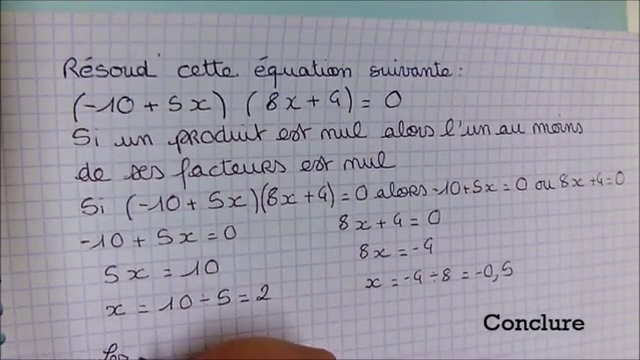 Résoud cette équation suivante :
(-10 + 5x) (8x + 4) = 0
Si un produit est nul alors l'un au moins
de ses facteurs est nul
Si (-10 + 5x)(8x + 4) = 0 alors -10 + 5x = 0 ou 8x + 4 = 0
-10 + 5x = 0
5x = 10
x = 10 ÷ 5 = 2
8x + 4 = 0
8x = -4
x = -4 ÷ 8 = -0,5
Conclure